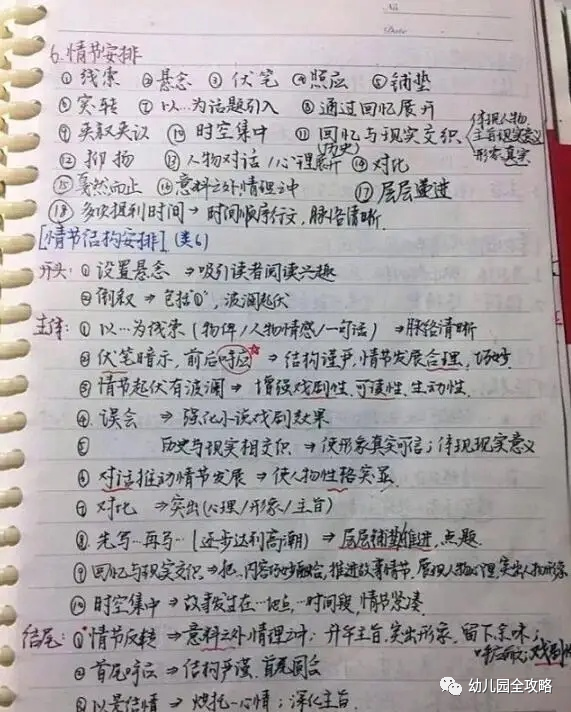 No
Date
6.情节安排
①线索 ②悬念 ③伏笔 ④照应 ⑤铺垫
⑥突转 ⑦以…为话题引入 ⑧通过回忆展开
⑨夹叙夹议 ⑩时空集中 ⑪回忆与现实交织(历史) 体现人物 主旨现实意义 形象真实
⑫抑扬 ⑬人物对话/心理展开 ⑭对比
⑮戛然而止 ⑯意料之外情理之中 ⑰层层递进
⑱多次提到时间→时间顺序行文,脉络清晰.
[情节结构安排](类6)
开头:①设置悬念⇒吸引读者阅读兴趣
②倒叙⇒包括"①",波澜起伏
主体:①以…为线索(物件/人物情感/一句话)⇒脉络清晰
②伏笔暗示,前后呼应⇒结构严谨,情节发展合理,巧妙
③情节起伏有波澜⇒增强戏剧性,可读性,生动性.
④误会⇒强化小说戏剧效果
⑤历史与现实相交织⇒使形象真实可信;体现现实意义
⑥对话推动情节发展⇒使人物性格突显
⑦对比⇒突出(心理/形象/主旨)
⑧先写…再写…(逐步达到高潮)⇒层层铺垫推进,点题.
⑨回忆与现实交织⇒把..内容巧妙融合,推进故事情节,展现人物心理,突出人物形象
⑩时空集中⇒故事发生在…地点,…时间段,情节紧凑.
结尾:①情节反转⇒意料之外情理之中;升华主旨,突出形象,留下余味;
②首尾呼应⇒结构严谨,首尾圆合
③以景结情⇒烘托…心情;深化主旨.
幼儿园全攻略